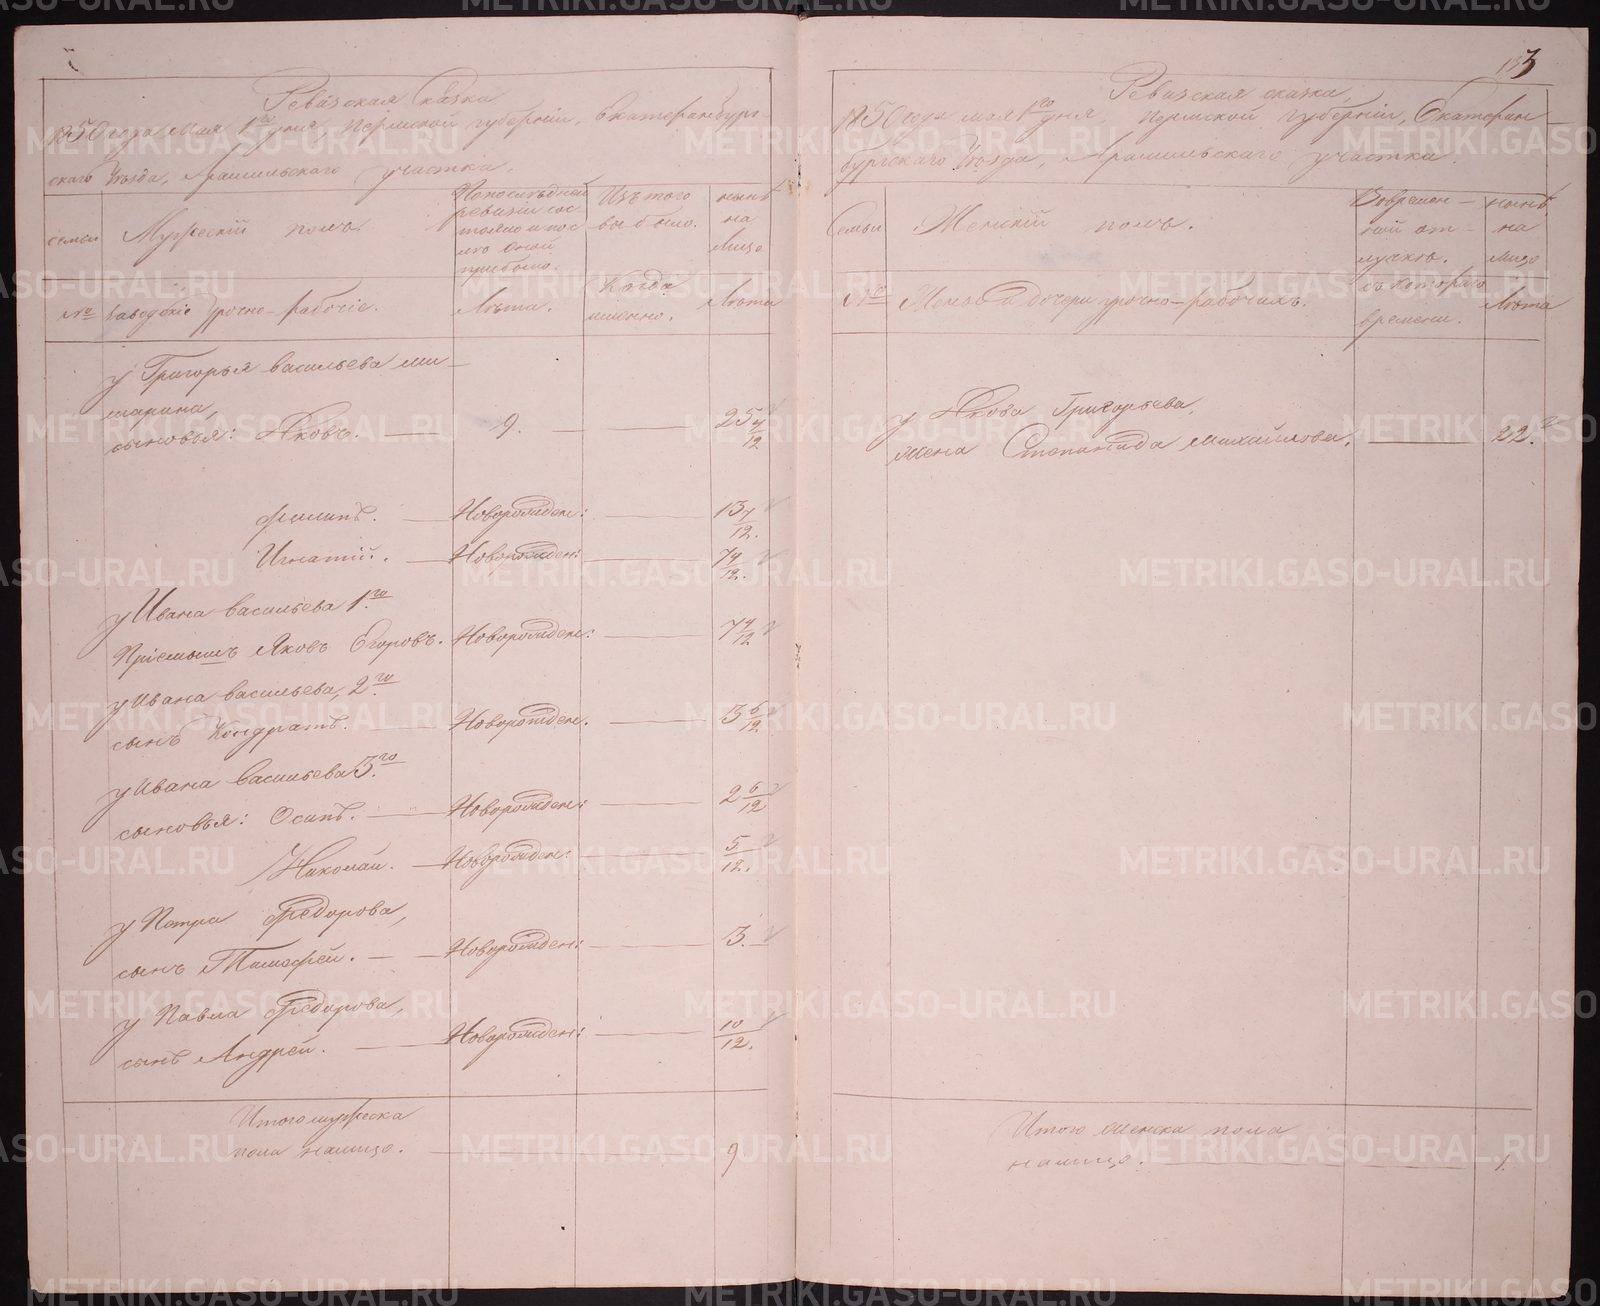 Ревизская Сказка
1850 года мая 1го дня, Пермской губернiи, Екатеринбург-
скаго Уѣзда, Арамильскаго участка.
семьи
Мужескiй полъ.
По послѣдней ревизiи сос-тояло и пос-лѣ оной прибыло.
Изъ того выбыло.
нынѣ на лицо
№
Заводскiе Урочно-рабочiе.
Лѣта.
Когда именно.
Лѣта
у Григорья Васильева ми-
шарина,
сыновья: Яковъ. 9. 25 4/12
Филипъ. Новорожден: 13 4/12.
Игнатiй. Новорожден: 7 4/12.
у Ивана Васильева 1.го
Прiемышъ Яковъ Егоровъ. Новорожден: 7 4/12
у Ивана Васильева, 2.го
сынъ Кондратъ. Новорожден. 3 6/12
у Ивана Васильева 3.го
сыновья: Осипъ. Новорожден: 2 6/12
Николай. Новорожден: 5/12.
у Петра Федорова,
сынъ Тимофей. Новорожден: 3.
у Павла Федорова,
сынъ Андрей. Новорожден: 10/12.
Итого мужеска
пола налицо. 9
Ревизская сказка,
1850 года мая 1го дня, Пермской губернiи, Екатерин-
бургскаго Уѣзда, Арамильскаго участка.
Семьи
Женскiй полъ.
Во времен-ной от-лучкѣ.
нынѣ на лицо
№
Жены и дочери урочно-рабочихъ.
съ котораго времени.
Лѣта
у Якова Григорьева,
жена Степанида Михайлова. 22.
Итого женска пола
налицо. 1.
METRIKI.GASO-URAL.RU